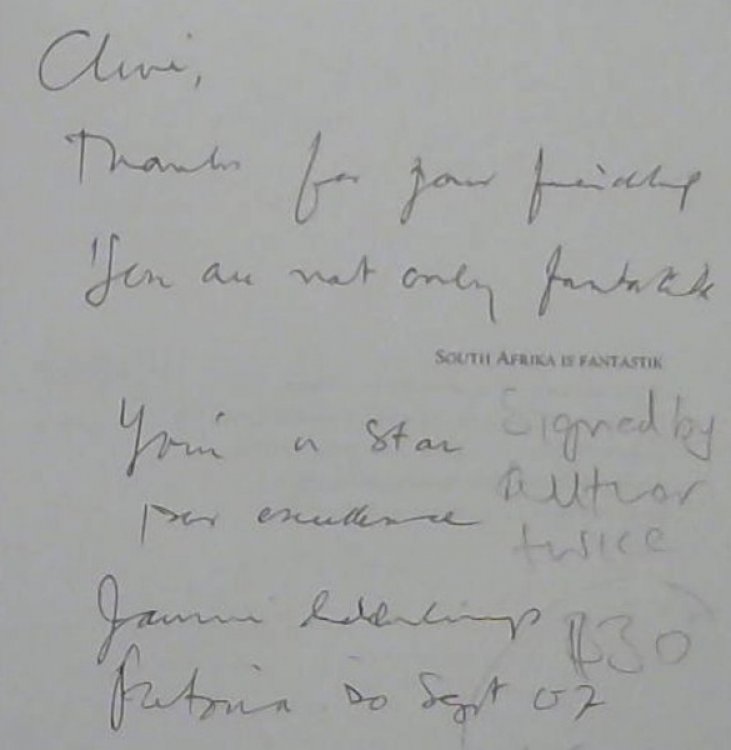 Clive,
Thanks for your friendship
You are not only fantastik
SOUTH AFRIKA IS FANTASTIK
You're a Star
Signed by
par excellence
Author
twice
$30
Pretoria 20 Sept 07